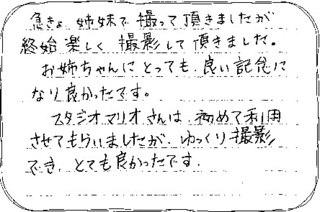 急きょ 姉妹で 撮って頂きましたが
終始 楽しく 撮影して 頂きました。
お姉ちゃんにとっても 良い記念に
なり良かったです。
スタジオマリオさんは 初めて利用
させてもらいましたが、ゆっくり撮影
でき、とても良かったです.